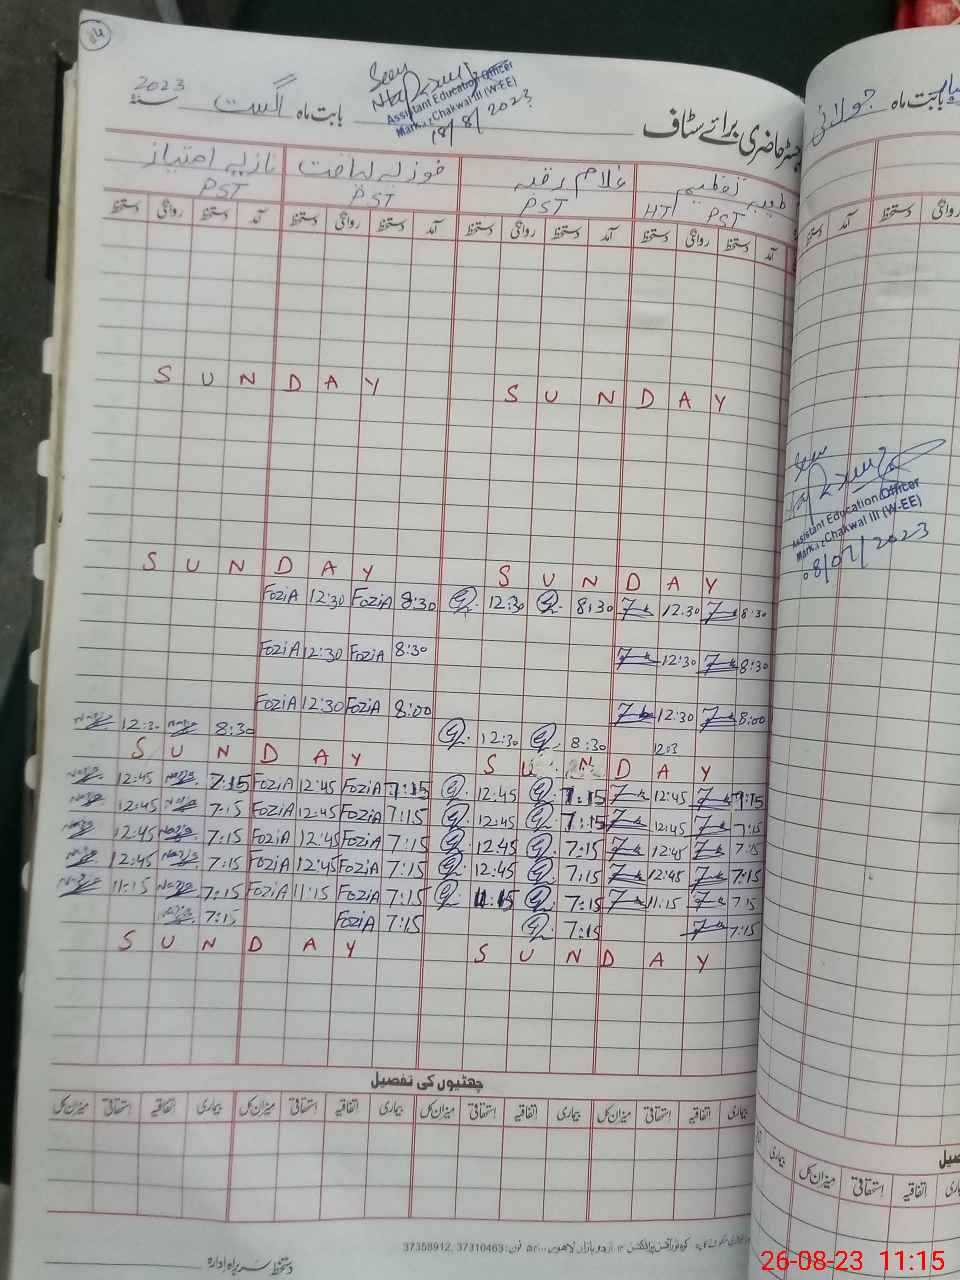 114
Seen
Assistant Education Officer
Chakwal III (W-EE)
18/8/2023
رجسٹر حاضری برائے سٹاف بابت ماہ اگست سنہ 2023
بابت ماہ جولائی
طیبہ تعظیم غلام رقیہ فوزیہ لیاقت نازیہ امتیاز
HT PST PST PST PST
آمد دستخط روانگی دستخط آمد دستخط روانگی دستخط آمد دستخط روانگی دستخط آمد دستخط روانگی دستخط
دستخط دستخط روانگی
SUNDAY SUNDAY
Seen
Assistant Education Officer
Chakwal III (W-EE)
08/07/2023
SUNDAY SUNDAY
FoziA 12:30 FoziA 8:30 12:30 8:30 12:30 8:30
FoziA 12:30 FoziA 8:30 12:30 8:30
FoziA 12:30 FoziA 8:00 12:30 8:00
Nazia 12:30 Nazia 8:30 12:30 8:30 12:3
SUNDAY SUNDAY
Nazia 12:45 Nazia 7:15 FoziA 12:45 FoziA 7:15 12:45 7:15 12:45 7:15
Nazia 12:45 Nazia 7:15 FoziA 12:45 FoziA 7:15 12:45 7:15 12:45 7:15
Nazia 12:45 Nazia 7:15 FoziA 12:45 FoziA 7:15 12:45 7:15 12:45 7:15
Nazia 12:45 Nazia 7:15 FoziA 12:45 FoziA 7:15 12:45 7:15 12:45 7:15
Nazia 11:15 Nazia 7:15 FoziA 11:15 FoziA 7:15 11:15 7:15 11:15 7:15
Nazia 7:15 FoziA 7:15 7:15 7:15
SUNDAY SUNDAY
چھٹیوں کی تفصیل
بیماری اتفاقیہ استحقاقی میزان کل بیماری اتفاقیہ استحقاقی میزان کل بیماری اتفاقیہ استحقاقی میزان کل بیماری اتفاقیہ استحقاقی میزان کل
بیماری میزان کل استحقاقی اتفاقیہ
اردو بازار لاہور فون: 37310463, 37358912
دستخط سربراہ ادارہ
26-08-23 11:15